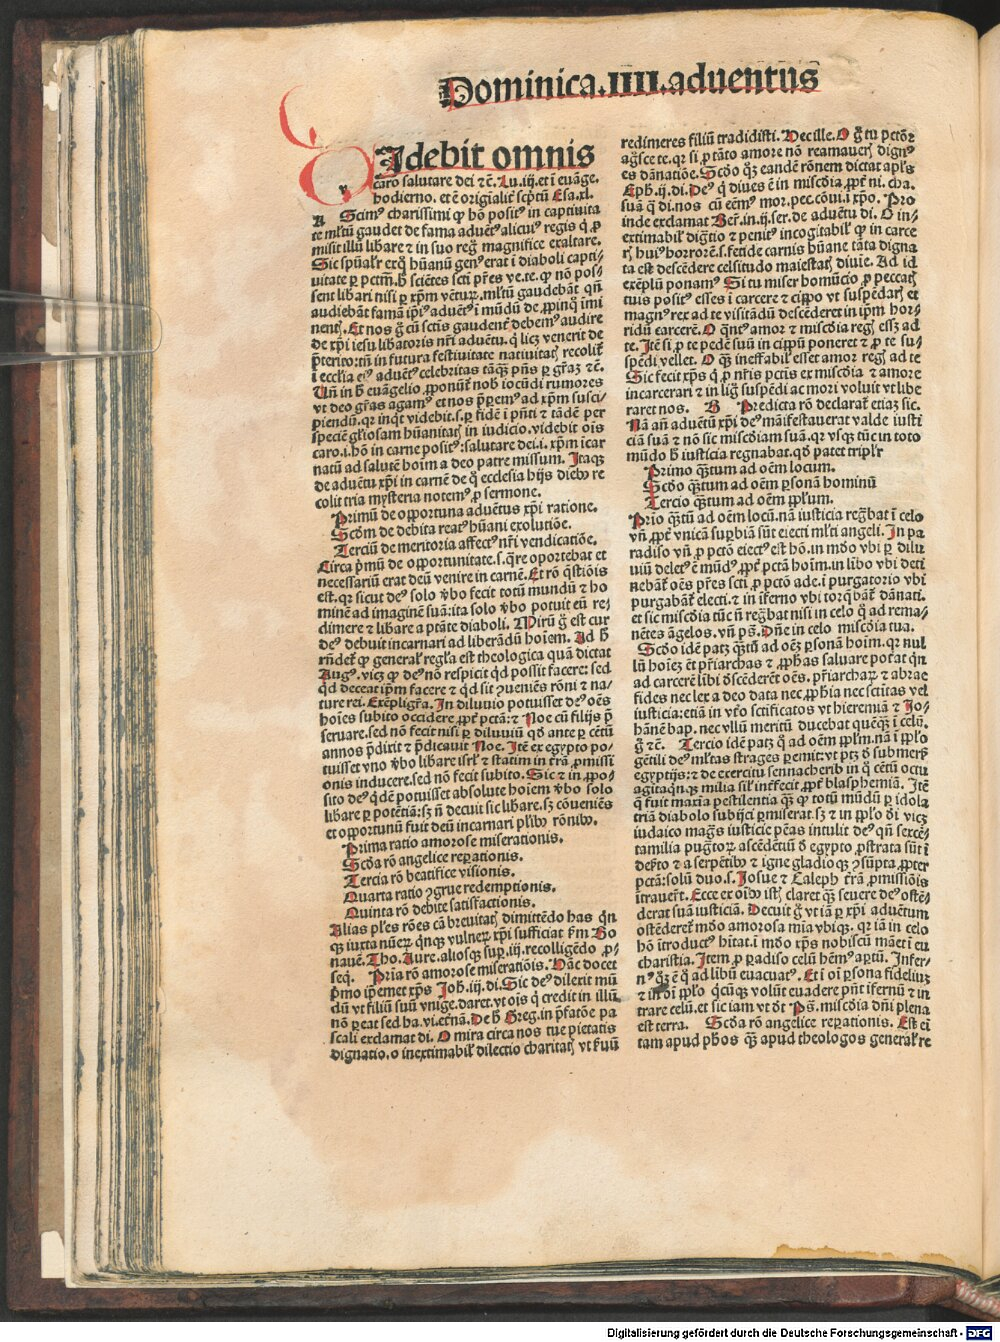 Dominica.IIII.aduentus
Idebit omnis
caro salutare dei ⁊c̃. Lu.iij. et ĩ euãge.
hodierno. et ẽ origĩaliꝉ scp̃tũ Esa.xl.
A Scimꝰ charissimi ꝙ hõ positꝰ in captiuita
te ml̃tũ gaudet de fama aduẽtꝰ alicuiꝰ regis q̃ ꝓ
misit illũ libare ⁊ in suo reg̃ magnifice exaltare.
Sic sp̃ual̃r erq̃ hũanũ genꝰ erat ĩ diaboli capti⸗
uitate ꝑ pctm̃. h̃ sciẽtes scti pr̃es ve.te. ꝙ nõ pos⸗
sent libari nisi ꝑ xp̃m vẽturꝰ. ml̃tũ gaudebãt qñ
audiebãt famã ip̃iꝰ aduẽtꝰ ĩ mũdũ de ꝓpinq̃ imi
nentꝭ. Et nos g̃ cũ sctis gaudentꝭ debemꝰ audire
de xp̃i iesu libatoris nr̃i aduẽtu. q̃ licꝫ venerit de
p̃terito: tñ in futura festiuitate natiuitatꝭ recolit̃
ĩ eccl̃ia eiꝰ aduẽtꝰ celebritas tãqꝫ p̃ns ꝑ gr̃az ⁊c̃.
Vñ in h̃ euãgelio ꝓponũt̃ nob̃ iocũdi rumores
vt deo gr̃as agamꝰ et nos p̃remꝰ ad xp̃m susci⸗
piendũ. qꝛ inq̃t videbit.s. ꝑ fidẽ ĩ p̃nti ⁊ tãdẽ per
speciẽ gl̃iosam hũanitatꝭ in iudicio. videbit ois
caro.i. hõ in carne positꝰ: salutare dei.i. xp̃m icar
natũ ad salutẽ hoim a deo patre missum. Itaqꝫ
de aduẽtu xp̃i in carnẽ de q̃ ecclesia hijs diebꝰ re
colit tria mysteria notemꝰ ꝓ sermone.
Primũ de opportuna aduẽtus xp̃i ratione.
Scdm de debita reatꝰ hũani exolutiõe.
Terciũ de meritoria affectꝰ nr̃i vendicatiõe.
Circa p̃mũ de opportunitate.s. q̃re oportebat et
necessariũ erat deũ venire in carnẽ. Et rõ q̃stiõis
est. qꝛ sicut deꝰ solo v̾bo fecit totũ mundũ ⁊ ho
minẽ ad imaginẽ suã: ita solo v̾bo potuit eũ re⸗
dimere ⁊ libare a ptãte diaboli. Mirũ g̃ est cur
deꝰ debuit incarnari ad liberãdũ hoĩem. Ad h̃
rñdet̃ ꝙ generaꝉ regl̃a est theologica quã dictat
Augꝰ. vicꝫ ꝙ deꝰ nõ respicit qd possit facere: sed
qd deceat ip̃m facere ⁊ qd sit ꝯueniẽs rõni ⁊ na⸗
ture rei. Exẽpligr̃a. In diluuio potuisset deꝰ oẽs
hoĩes subito occidere ꝓpt̃ pctã: ⁊ Noe cũ filijs p̃
seruare. sed nõ fecit nisi ꝑ diluuiũ qd ante ꝑ cẽtũ
annos p̃dixit ⁊ p̃dicauit Noe. Itẽ ex egypto po⸗
tuisset vno v̾bo libare isrl̃ ⁊ statim in tr̃ã ꝓmissi
onis inducere. sed nõ fecit subito. Sic ⁊ in ꝓpo⸗
sito deꝰ qdẽ potuisset absolute hoĩem v̾bo solo
libare ꝑ potẽtiã: sꝫ ñ decuit sic libare. sꝫ cõueniẽs
et opportunũ fuit deũ incarnari pl̃ibꝰ rõnibꝰ.
Prima ratio amorose miserationis.
Scda rõ angelice reꝑationis.
Tercia rõ beatifice visionis.
Quarta ratio ꝯgrue redemptionis.
Quinta rõ debite satisfactionis.
Alias pl̃es rões cã breuitatꝭ dimittẽdo has q̃n
qꝫ iuxta nũeꝝ q̃nqꝫ vulneꝝ xp̃i sufficiat ẜm Bo
nauẽ. Tho. Aure. aliosqꝫ suꝑ.iij. recolligẽdo ꝓ⸗
seq̃. Prĩa rõ amorose miseratiõis. Hãc docet
p̃mo ip̃emet xp̃s Joh.iij. di. Sic deꝰ dilexit mũ
dũ vt filiũ suũ vnige. daret. vt ois q̃ credit in illũ
nõ ꝑeat sed ha.vi.etr̃nã. De h̃ Greg. in p̃fatõe pa
scali exclamat di. O mira circa nos tue pietatis
dignatio. o inextimabiꝉ dilectio charitatꝭ vt ẜuũ
redimeres filiũ tradidisti. Hec ille. O g̃ tu pctõꝝ
ag̃sce te. qꝛ si ꝓ tãto amore nõ reamauerꝭ dignꝰ
es dãnatiõe. Scdo q̃ꝫ eandẽ rõnem dictat apl̃s
Eph.ij. di. Deꝰ q̃ diues ẽ in misc̃dia ꝓpt̃ ni. cha.
suã q̃ di. nos cũ eẽmꝰ mor. pec. cõui. ĩ xp̃o. Pro
inde exclamat Ber̃. in.ij. ser. de aduẽtu di. O in⸗
extimabiꝉ dig̃tio ⁊ penitꝰ incogitabiꝉ ꝙ in carce
rꝭ huiꝰ horrorẽ.s. fetide carnis hũane tãta digna
ta est descẽdere celsitudo maiestatꝭ diuie. Ad id
exẽplũ ponamꝰ Si tu miser homũcio ꝓ peccatꝭ
tuis positꝰ esses ĩ carcere ⁊ cippo vt suspẽdarꝭ et
magnꝰ rex ad te visitãdũ descẽderet in ip̃m hor⸗
ridũ carcerẽ. O q̃ntꝰ amor ⁊ misc̃dia regꝭ essꝫ ad
te. Itẽ si ꝓ te pedẽ suũ in cippũ poneret ⁊ ꝓ te su⸗
spẽdi vellet. O q̃ꝫ ineffabiꝉ esset amor regꝭ ad te
Sic fecit xp̃s q̃ ꝓ nr̃is pctis ex misc̃dia ⁊ amore
incarcerari ⁊ in lig̃ suspẽdi ac mori voluit vt libe
raret nos. B Predicta rõ declarat̃ etiaꝫ sic.
Nã añ aduẽtũ xp̃i deꝰ mãifestauerat valde iusti
ciã suã ⁊ nõ sic misc̃diam suã. qꝛ vsqꝫ tũc in toto
mũdo h̃ iusticia regnabat. qd patet tripl̃r
Primo q̃ꝫtum ad oẽm locum.
Scdo q̃ꝫtum ad oẽm ꝑsonã hominũ
Tercio q̃ꝫtum ad oẽm ppl̃um.
Prĩo q̃ꝫtũ ad oẽm locũ. nã iusticia reg̃bat ĩ celo
vñ ꝓpt̃ vnicã suꝑbiã sũt eiecti ml̃ti angeli. In pa
radiso vñ ꝓ pctõ eiectꝰ est hõ. in mõdo vbi ꝑ dilu
uiũ deletꝰ ẽ mũdꝰ ꝓpt̃ pctã hoĩm. in libo vbi deti
nebãt̃ oẽs pr̃es scti ꝓ pctõ ade. ĩ purgatorio vbi
purgabãt̃ electi. ⁊ in iferno vbi torq̃bãt̃ dãnati.
et sic misc̃dia tũc ñ reg̃bat nisi in celo q̃ ad rema⸗
nẽtes ãgelos. vñ pꝰ. Dñe in celo misc̃dia tua.
Scdo idẽ patꝫ q̃ꝫtũ ad oẽꝫ ꝑsonã hoĩm. qꝛ nul
lũ hoĩeꝫ et̃ pr̃iarchas ⁊ ꝓphas saluare poꝉat q̃n
ad carcerẽ libi descẽderet̃ oẽs. pr̃iarchaꝝ ⁊ abrae
fides nec lex a deo data nec ꝓphia nec sc̃titas vel
iusticia: etiã in vt̃o sc̃tificatos vt hieremiã ⁊ Jo⸗
hãnẽ bap. nec vllũ meritũ ducebat quẽqꝫ ĩ celũ.
g̃ ⁊c̃. Tercio idẽ patꝫ q̃ ad oẽm ppl̃m. nã ĩ ppl̃o
gẽtili deꝰ ml̃tas strages ꝑemit: vt ptꝫ d̃ submerß
egyptijs: ⁊ de exercitu sennacherib in q̃ cẽtũ octu
agitaqñqꝫ milia siꝉ inẜfecit ꝓpt̃ blasphemiã. Itẽ
q̃ fuit maxia pestilentia q̃ꝫ ꝙ totũ mũdũ ꝑ idola
triã diabolo subijci ꝑmiserat. sꝫ ⁊ in ppl̃o di vicꝫ
iudaico magꝭ iusticie pẽas intulit deꝰ qñ sexcẽ⸗
tamilia pugt̃oꝝ ascẽdẽtiũ d̃ egypto ꝓstrata sũt ĩ
deẜto ⁊ a serpẽtibꝰ ⁊ igne gladioqꝫ ꝯsũpta ꝓpter
pctã: solũ duo.s. Josue ⁊ Caleph tr̃ã ꝓmissiõis
ĩtrauer̃t. Ecce ex oĩbꝰ istꝭ claret q̃ꝫ seuere deꝰ ostẽ⸗
derat suã iusticiã. Decuit g̃ vt iã ꝑ xp̃i aduẽtum
ostẽderet̃ mõdo amorosa mĩa vbiqꝫ. qꝛ iã in celo
hõ ĩtroductꝰ hitat. ĩ mõdo xp̃s nobiscũ mãet ĩ eu
charistia. Item ꝓ ꝑadiso celũ hẽmꝰ aꝑtũ. Infer⸗
nꝰ q̃ꝫ ẽ q̃ ad libũ euacuatꝰ. Et ĩ oĩ ꝑsona fideliuꝫ
⁊ in oĩ ppl̃o q̃cũqꝫ volũt euadere pñt ifernũ ⁊ in
trare celũ. et sic iam vt dr̃ Pꝰ. misc̃dia dñi plena
est terra. Scda rõ angelice reꝑationis. Est ei̾
tam apud phos q̃ꝫ apud theologos generaꝉ re
Digitalisierung gefördert durch die Deutsche Forschungsgemeinschaft - DFG